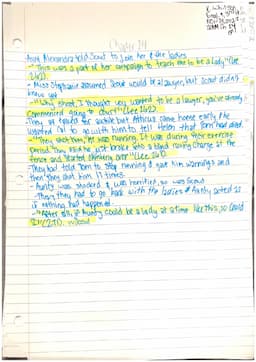 Chapter 24
Aunt Alexandra told Scout to join her & the ladies
- "This was a part of her campaign to teach me to be a lady" (Lee
262).
- Miss Stephanie assumed Scout would be a lawyer, but Scout didn't
"Why shoot, I thought you wanted to be a lawyer, you've already
commenced going to court" (Lee
- They for awhile but Atticus came home early & he
Cal to go with him to tell Helen that Tom had died.
- "They shot him, He was running. It was during their exercise
period. They said he just broke into a blind raving charge at the
fence and started climbing over" (Lee
- They had told Tom to stop running & gave him warnings and
then they shot him 17 times.
- Aunty was shocked & was horrified, so was Scout
- Then they had to go back with the ladies & Aunty acted as
if nothing had happened.
- "After all, if Aunty could be a lady at a time like this, so could
I"